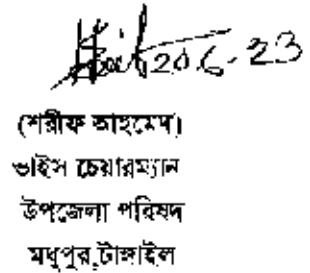 20.6.23
(শরীফ আহমেদ)
ভাইস চেয়ারম্যান
উপজেলা পরিষদ
মধুপুর,টাঙ্গাইল